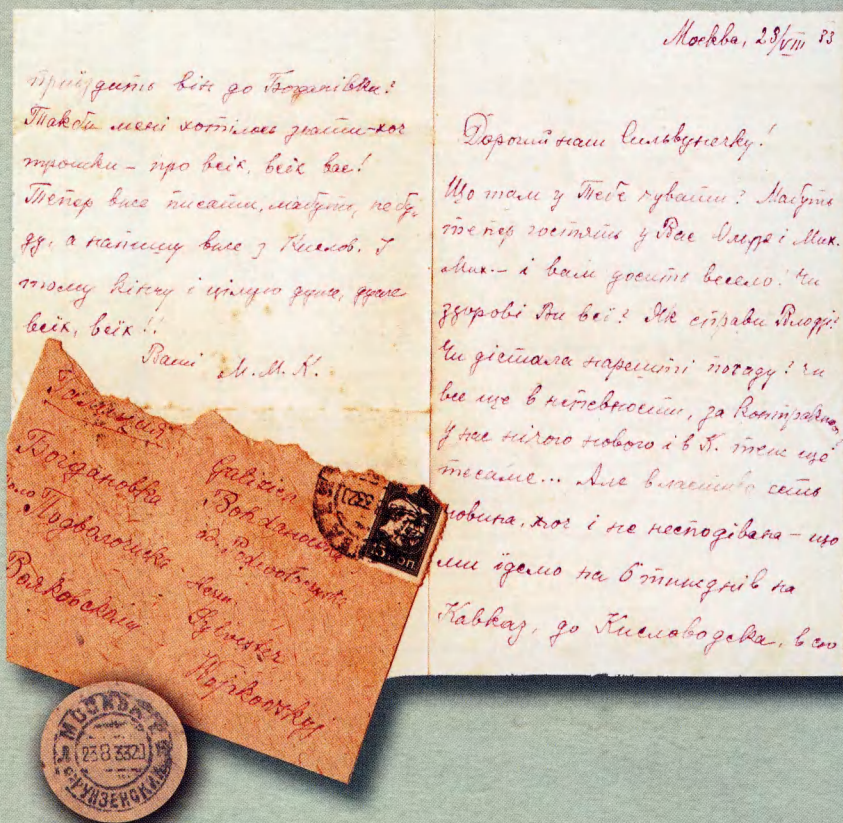 Москва, 23/VIII 33
Дорогий наш Сильвунечку!
Що там у Тебе чувати? Мабуть
тепер гостять у Вас Ольга і Мик.
Мик. – і вам досить весело! Чи
здорові Ви всі? Як справи Влодзі?
Чи дістала нарешті посаду? Чи
все ще в непевности, за
У нас нічого нового і в К. теж що
тесаме... Але властиво єсть
новина, хоч і не несподівана – що
ми їдемо на 6 тижднів на
Кавказ, до Кисловодська, в
приїздить він до Богданівки?
Так би мені хотілось знати – хоч
трошки – про всіх, всіх вас!
Тепер вже писати, мабуть, не бу-
ду, а напишу вже з Кислов. І
тому кінчу і цілую дуже, дуже
всіх, всіх!
Ваші М. М. К.
Галиция
Богдановка
Подволочиска
Вояковский
Galizien
Bohdanowka
Herrn
Sylvester
Wojakowskyj
МОСКВА
23 8 33 20
ФРУНЗЕНСКАЯ